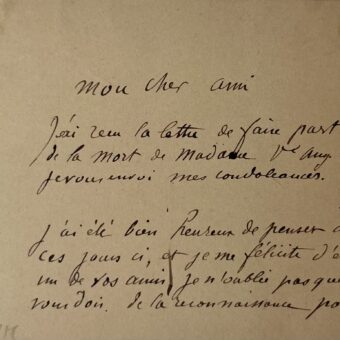 Mon cher ami
J'ai recu la lettre de faire part
de la mort de Madame Vve Aug
je vous envoi mes condoleances.
j'ai été bien heureux de penser
ces jours ci, et je me félicite d'e
un de vos amis, je n'oublie pas que
vous dois de la reconnaissance po